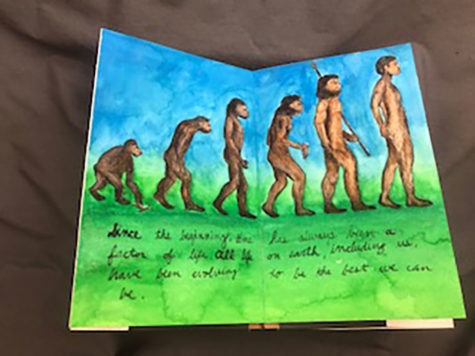 Since the beginning, time has always been a
factor of life. All life on earth, including us,
have been evolving to be the best we can
be.